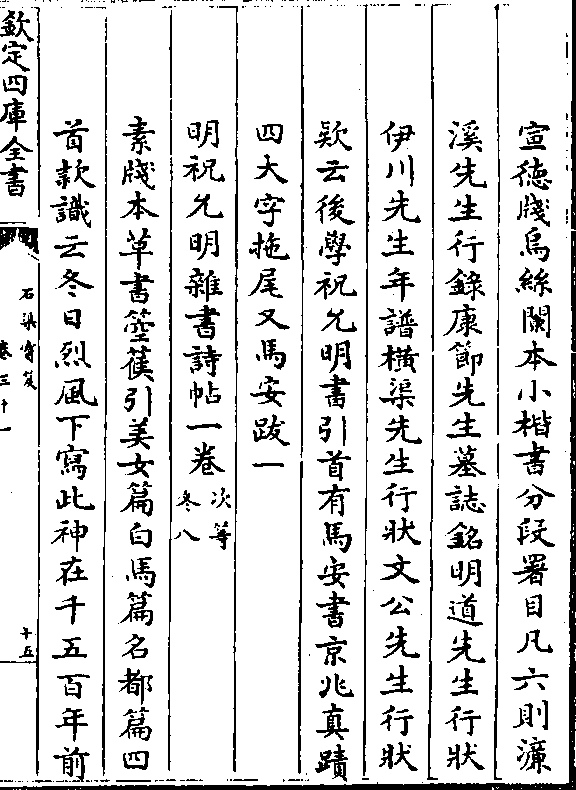 宣徳牋烏絲闌本小楷書分段署目凡六則濂
溪先生行錄康節先生墓誌銘明道先生行狀
伊川先生年譜橫渠先生行狀文公先生行狀
欵云後學祝允明書引首有馬安書京兆真蹟
四大字拖尾又馬安跋一
明祝允明雜書詩帖一卷 次等冬八
素牋本草書箜篌引美女篇白馬篇名都篇四
首款識云冬日烈風下寫此神在千五百年前
欽定四庫全書
石渠寳笈
卷三十一
十五